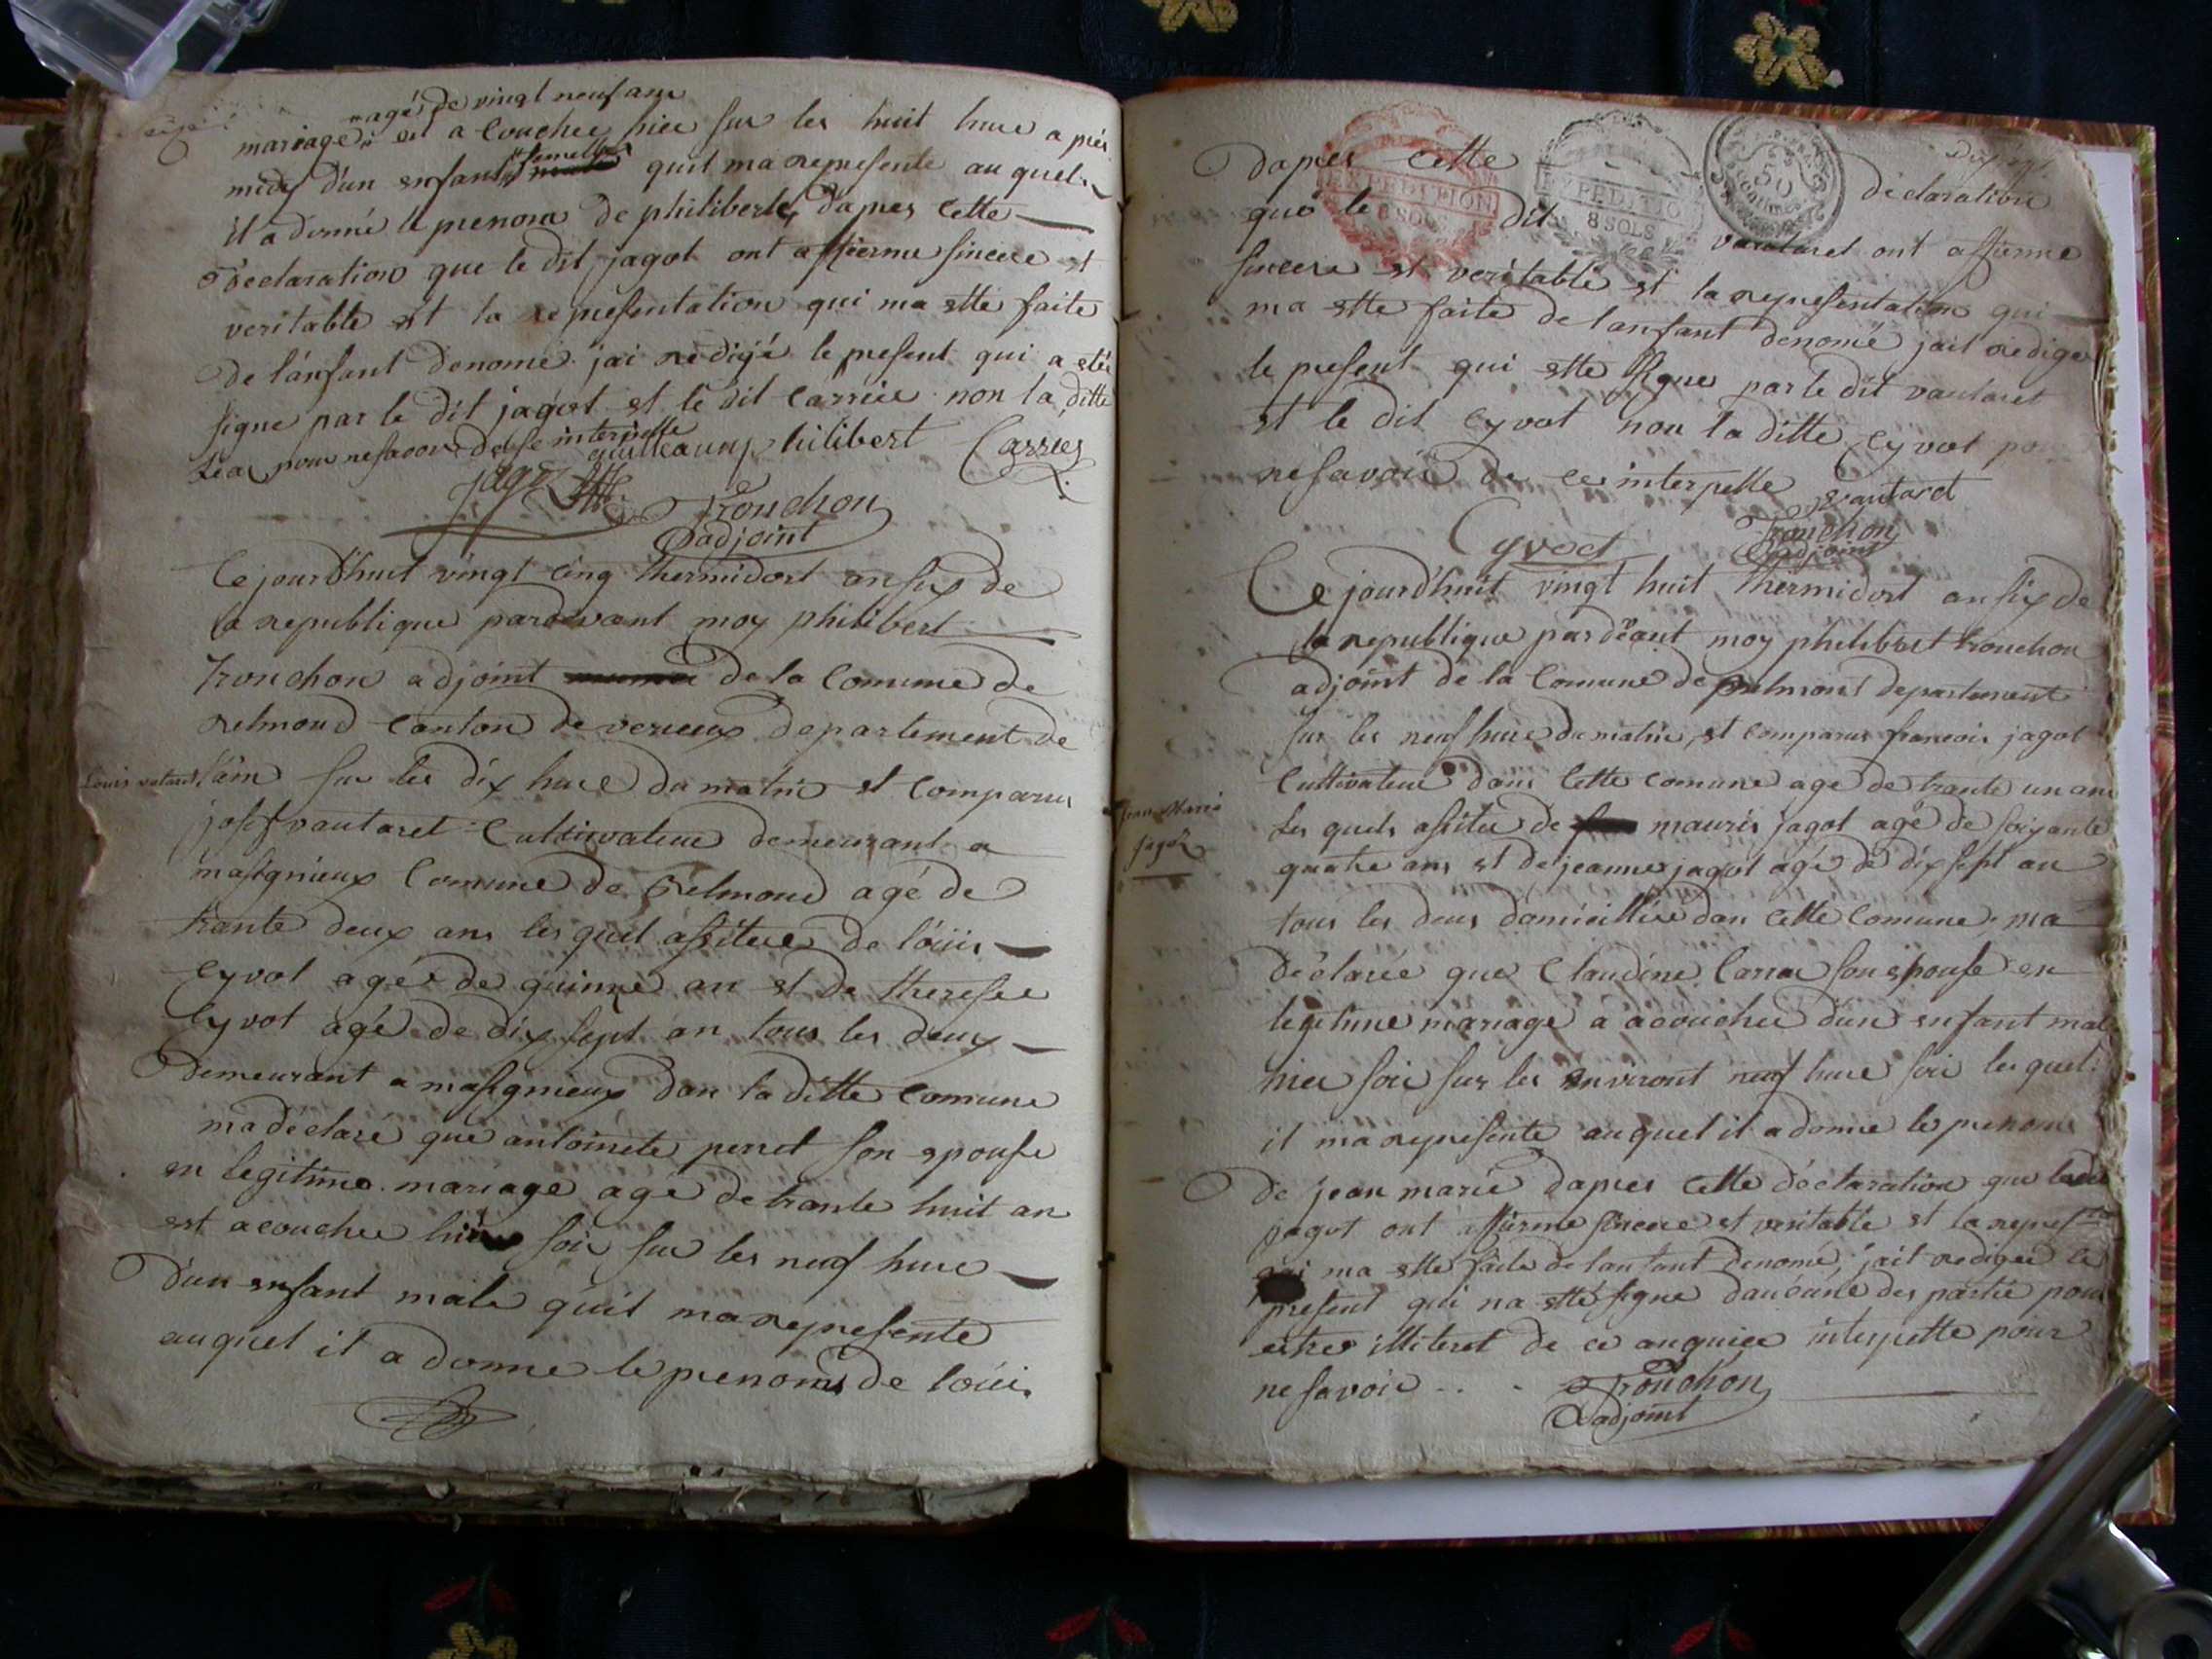 agé de vingt neuf ans
mariage est a couchee hier sur les huit hure a pres
midy d'un enfant femelle quil ma represente au quel
il a donné le prenom de philiberte, dapres cette
declaration que le dit jagot ont affierme sincere et
veritable et la representation qui ma ette faite
de l'anfant denomé jai redigé le present qui a eté
signe par le dit jagot et le dit Carrier non la ditte
pour ne savoir de se interpelle
guilleaumy philibert Carrier
jagot Tronchon
adjoint
Ce jourdhuit vingt cinq thermidort an six de
la republique pardevant moy philibert
tronchon adjoint de la Comune de
relmond canton de verieux departement de
Louis vataret
l'ain sur les dix hure du matin et comparus
josef vautaret Cultivateur demeurant a
masignieux Comune de Belmond agé de
trante deux ans les quel assitee de l'ouis
Cyvot agée de quinne an et de theresee
Cyvot agé de dix sept an tous les deux
Demeurant a masignieux dan la ditte Comune
ma déclaré que antoinete perret son epouse
en legitime mariage age de trante huit an
est acouchee hier soir sur les neuf hure
d'un enfant male qu'il ma represente
auquel il a donne le prenoms de l'ouis
Dapres cette declaration
EXPEDITION
8 SOLS
EXPEDITIO
8 SOLS
50
que le dit vautaret ont affierme
sincere et veritable et la representation qui
ma ette faite de lanfant denomé jait redige
le present qui ette signe par le dit vautaret
et le dit Cyvot non la ditte Cyvot
ne savoir de ce interpelle
vautaret
Cyvoct
Tronchon
adjoint
Ce jourdhuit vingt huit thermidort an six de
la republique pardeant moy philibert tronchon
adjoint de la Comune de Belmont departement
sur les neuf hure du matin, et comparus francois jagot
Cultivateur dans cette comune age de trante un ans
Jean Marie
jagot
les quels assitee de mauris jagot agé de soixante
quatre ans et de jeanne jagot agé de dix sept an
tous les deux domicillié dan cette Comune, ma
déclarée que Claudine Carra son epouse en
legitime mariage à acouchee d'un enfant mal
hier soir sur les environt neuf hure soir les quel
il ma represente auquel il a donne le prenom
de jean marie dapres cette déclaration que
jagot ont affierme sincere et veritable et la
qui ma ette faite de lanfant denomé, jait redigee le
present qui na etté signe daucune des partie pour
estre illiteret de ce anquiee interpelle pour
ne savoir . . .
Tronchon
adjoint